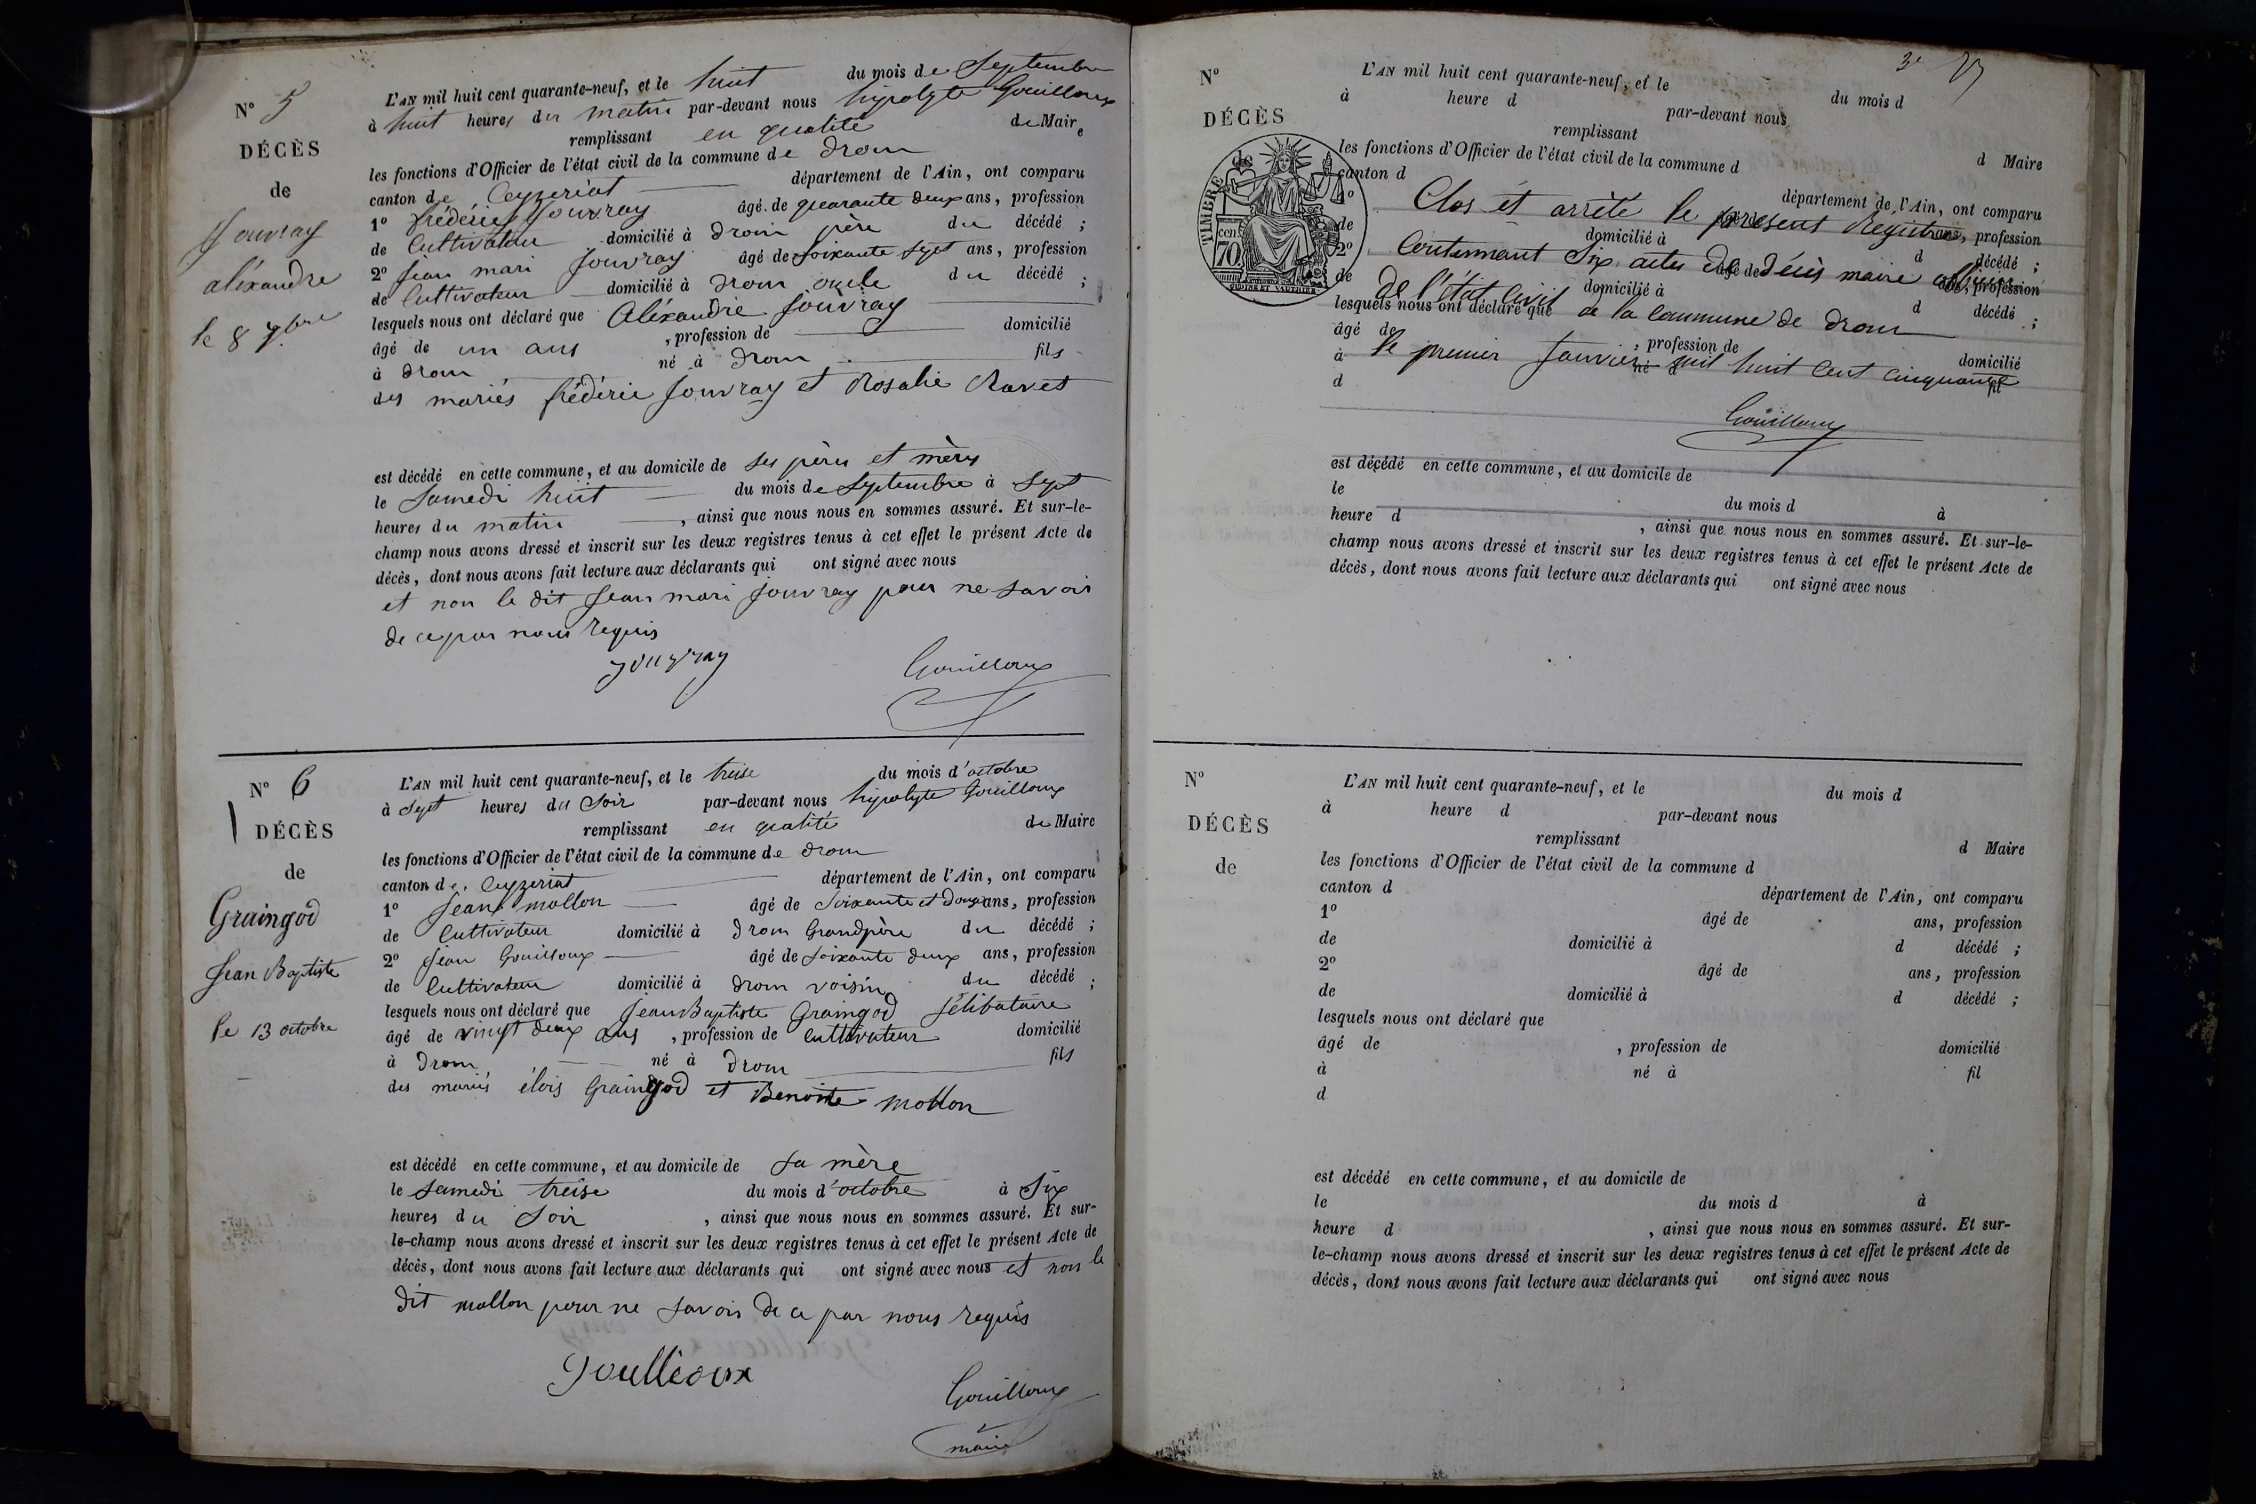 N° 5
DÉCÈS
de
Jouvray
aléxandre
le 8 7.bre
L'AN mil huit cent quarante-neuf, et le huit du mois de Septembre
à huit heures du matin par-devant nous hipolyte Gouilloux
remplissant en qualité de Maire
les fonctions d'Officier de l'état civil de la commune de Drom
canton de Ceyzeriat département de l'Ain, ont comparu
1° frédéric Jouvray âgé de quarante deux ans, profession
de Cultivateur domicilié à Drom père du décédé ;
2° Jean mari Jouvray âgé de soixante sept ans, profession
de Cultivateur domicilié à Drom oncle du décédé ;
lesquels nous ont déclaré que Aléxandre Jouvray
âgé de un ans , profession de domicilié
à Drom né à Drom fils
des mariés frédéric Jouvray et Rosalie Ravet
est décédé en cette commune, et au domicile de ses pères et mères
le Samedi huit du mois de Septembre à Sept
heures du matin , ainsi que nous nous en sommes assuré. Et sur-le-
champ nous avons dressé et inscrit sur les deux registres tenus à cet effet le présent Acte de
décès, dont nous avons fait lecture aux déclarants qui ont signé avec nous
et non le dit Jean mari Jouvray pour ne savoir
de ce par nous requis
jouvray Gouilloux
N° 6
DÉCÈS
de
Graingod
Jean Baptiste
le 13 octobre
L'AN mil huit cent quarante-neuf, et le treise du mois d'octobre
à Sept heures du Soir par-devant nous hipolyte Gouilloux
remplissant en qualité de Maire
les fonctions d'Officier de l'état civil de la commune de Drom
canton de Ceyzeriat département de l'Ain, ont comparu
1° Jean mollon âgé de Soixante et Douze ans, profession
de Cultivateur domicilié à Drom Grandpère du décédé ;
2° Jean Gouilloux âgé de Soixante deux ans, profession
de Cultivateur domicilié à Drom voisin du décédé ;
lesquels nous ont déclaré que Jean Baptiste Graingod Sélibataire
âgé de vingt deux ans , profession de Cultivateur domicilié
à Drom né à Drom fils
des mariés élois Graingod et Benoite mollon
est décédé en cette commune, et au domicile de sa mère
le Samedi treise du mois d'octobre à Six
heures du Soir , ainsi que nous nous en sommes assuré. Et sur-
le-champ nous avons dressé et inscrit sur les deux registres tenus à cet effet le présent Acte de
décès, dont nous avons fait lecture aux déclarants qui ont signé avec nous et non le
dit mollon pour ne savoir de ce par nous requis
Goullioux
Gouilloux
maire
3e
N°
DÉCÈS
de
TIMBRE
cen
70
L'AN mil huit cent quarante-neuf, et le du mois d
à heure d par-devant nous
remplissant d Maire
les fonctions d'Officier de l'état civil de la commune d
canton d département de l'Ain, ont comparu
1° âgé de ans, profession
Clos et arrété le présent Régistre
de domicilié à d décédé ;
Contennant Six actes de Décès maire officier
2° âgé de ans, profession
de domicilié à d décédé ;
De l'état civil de la Commune de Drom
lesquels nous ont déclaré que
âgé de , profession de domicilié
le premier Janvier mil huit cent cinquante
à né à fil
d
Gouilloux
est décédé en cette commune, et au domicile de
le du mois d à
heure d , ainsi que nous nous en sommes assuré. Et sur-le-
champ nous avons dressé et inscrit sur les deux registres tenus à cet effet le présent Acte de
décès, dont nous avons fait lecture aux déclarants qui ont signé avec nous
N°
DÉCÈS
de
L'AN mil huit cent quarante-neuf, et le du mois d
à heure d par-devant nous
remplissant d Maire
les fonctions d'Officier de l'état civil de la commune d
canton d département de l'Ain, ont comparu
1° âgé de ans, profession
de domicilié à d décédé ;
2° âgé de ans, profession
de domicilié à d décédé ;
lesquels nous ont déclaré que
âgé de , profession de domicilié
à né à fil
d
est décédé en cette commune, et au domicile de
le du mois d à
heure d , ainsi que nous nous en sommes assuré. Et sur-
le-champ nous avons dressé et inscrit sur les deux registres tenus à cet effet le présent Acte de
décès, dont nous avons fait lecture aux déclarants qui ont signé avec nous